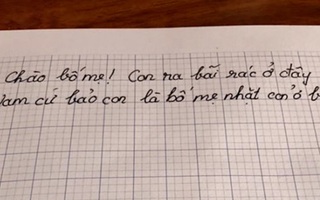 Chào bố mẹ! Con ra bãi rác ở đây
cứ bảo con là bố mẹ nhặt con ở